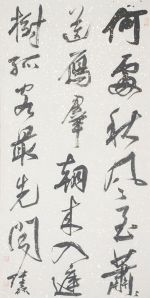 何處秋風至蕭蕭
送鴈羣朝来入庭
樹孤客最先聞